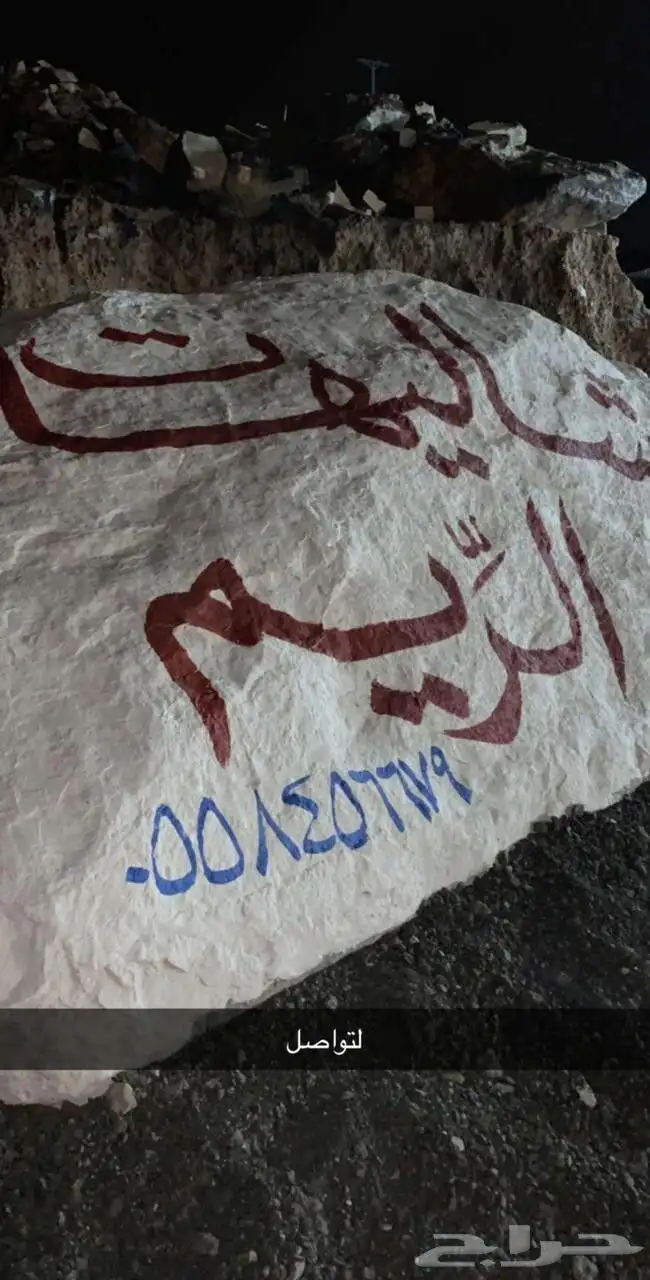 شاليهات
الرَّيم
٠٥٥٨٤٥٦٦٧٩
لتواصل
حراج